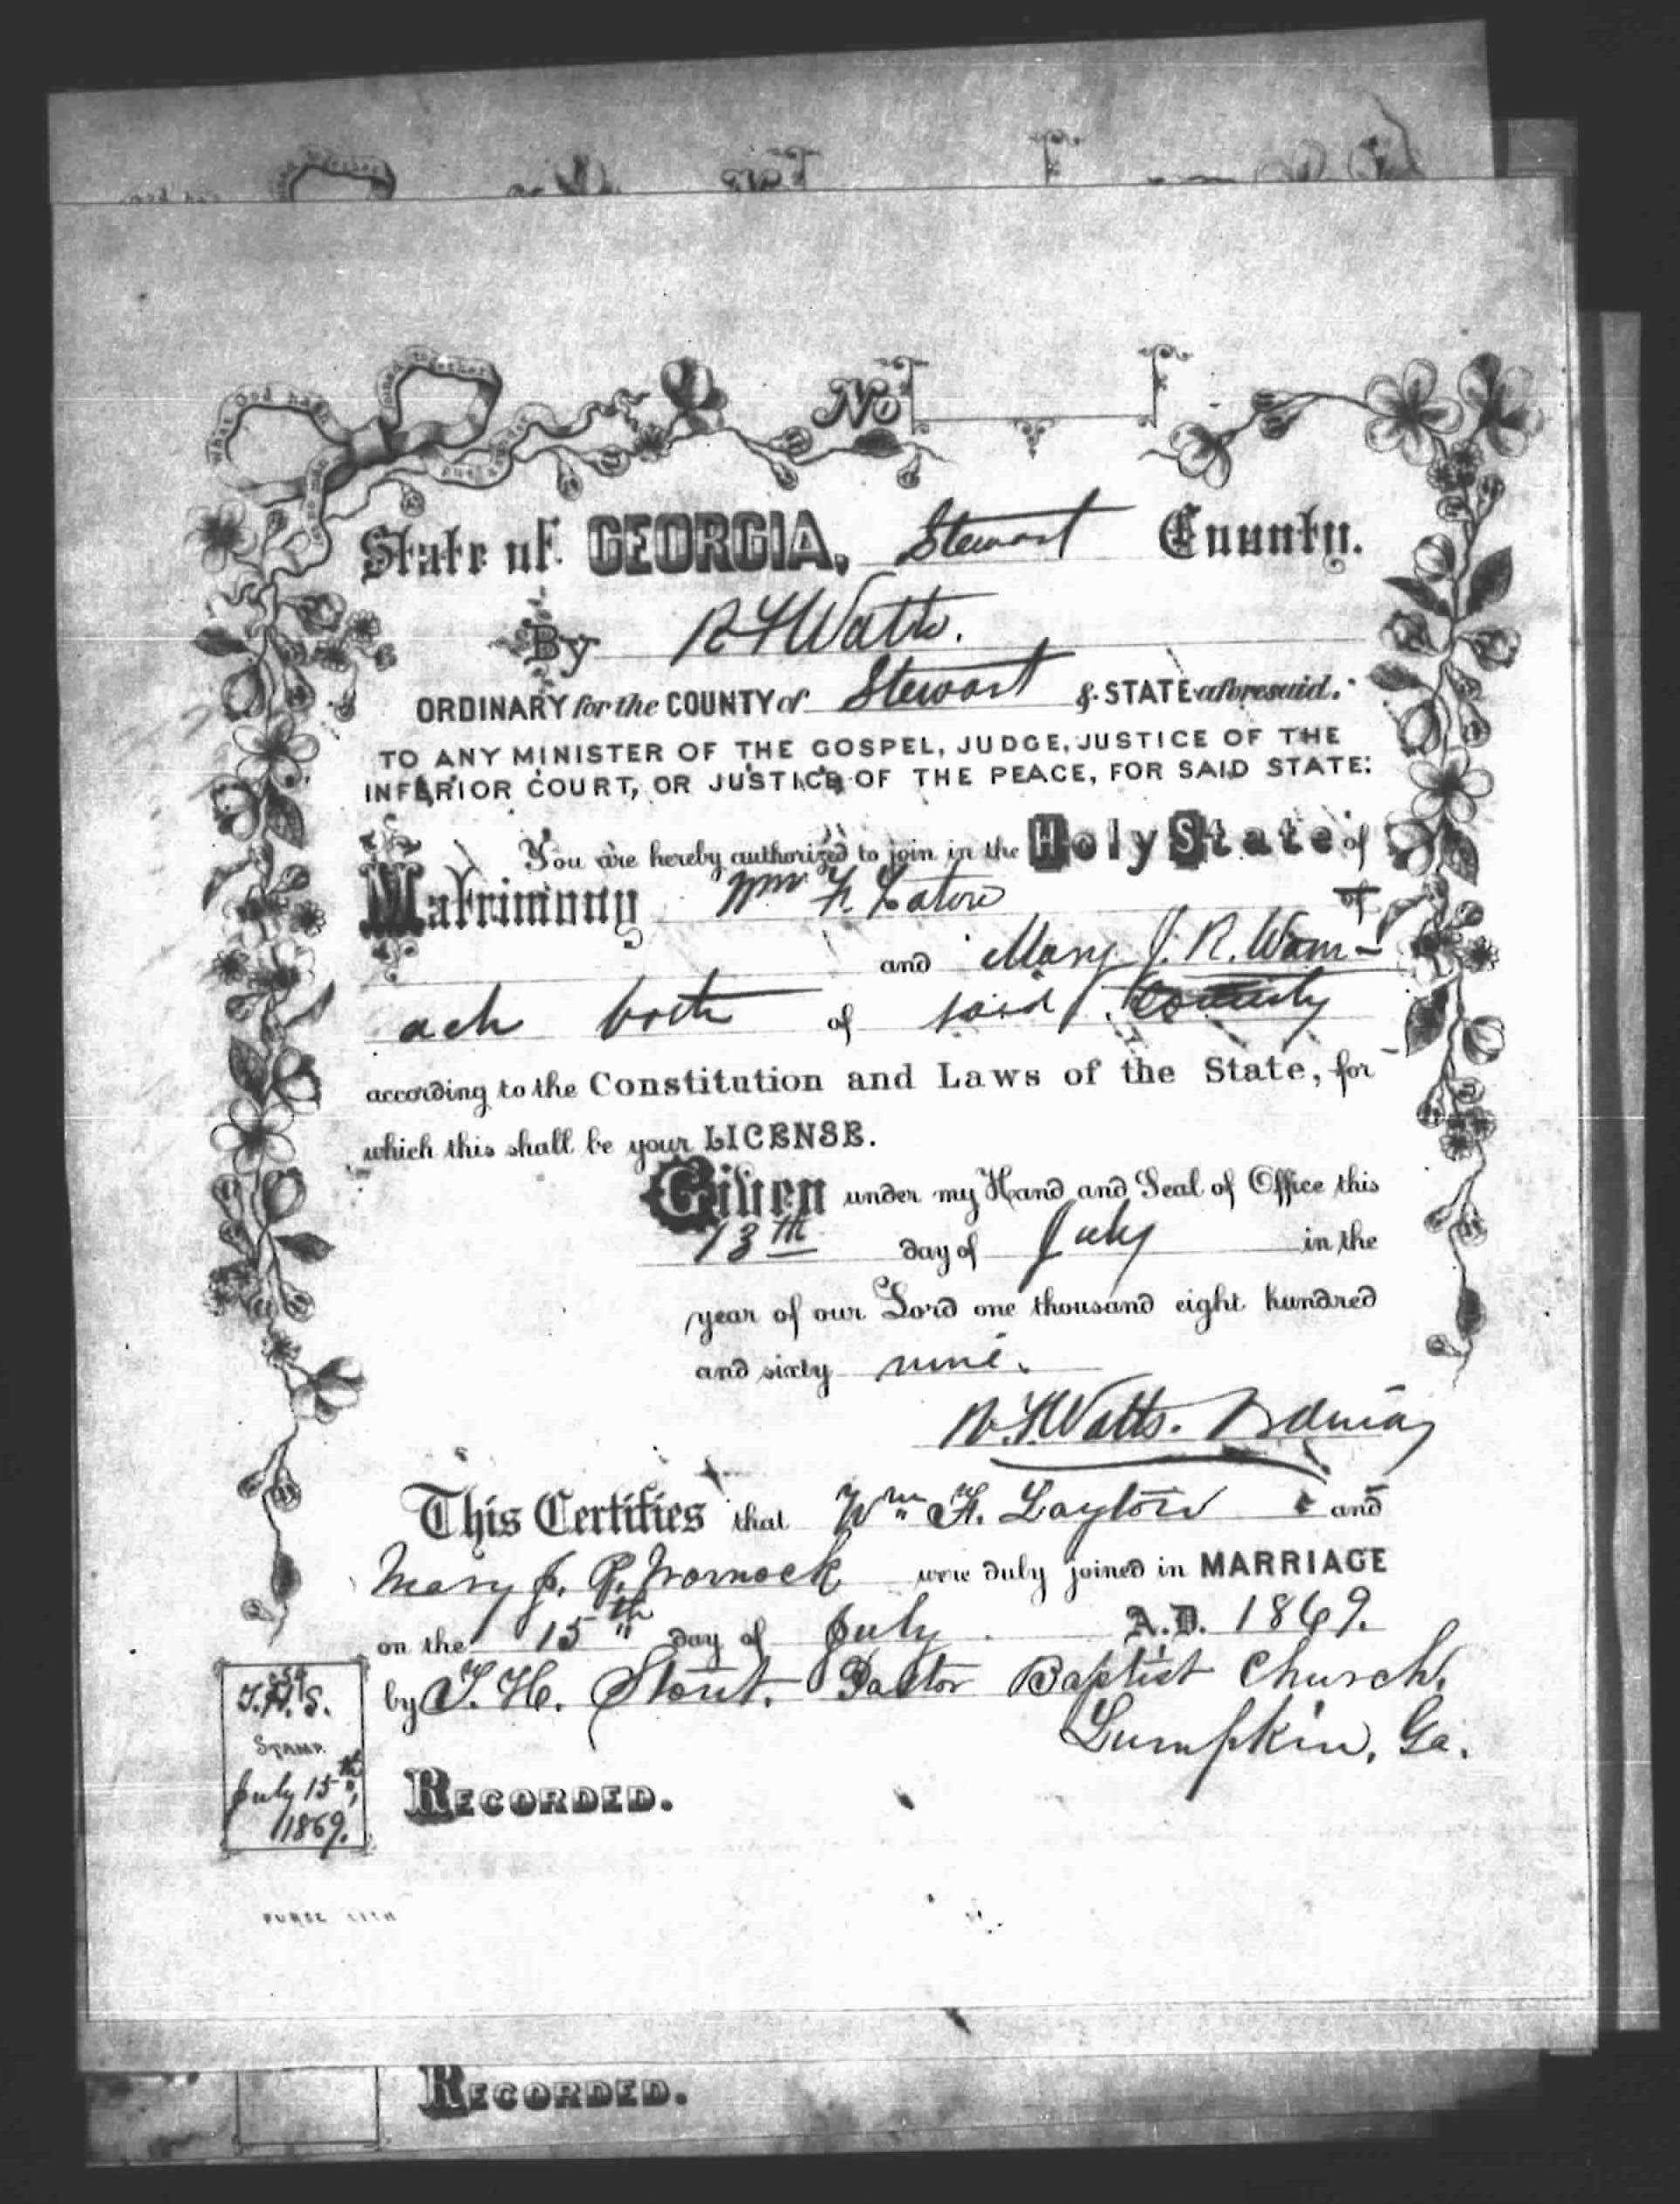 What God hath joined together
let no man put asunder
No
State of GEORGIA, Stewart County.
By R F Watts.
ORDINARY for the COUNTY of Stewart & STATE aforesaid.
TO ANY MINISTER OF THE GOSPEL, JUDGE, JUSTICE OF THE
INFERIOR COURT, OR JUSTICE OF THE PEACE, FOR SAID STATE:
You are hereby authorized to join in the Holy State of
Matrimony Wm F. Laton of
and Mary J. R. Wom-
ach both of said County
according to the Constitution and Laws of the State, for
which this shall be your LICENSE.
Given under my Hand and Seal of Office this
13th day of July in the
year of our Lord one thousand eight hundred
and sixty nine.
R. F. Watts. Ordinary
This Certifies that Wm F. Layton and
Mary J. R. Wornock were duly joined in MARRIAGE
on the 15th day of July A.D. 1869.
by T. H. Stout. Pastor Baptist Church,
Lumpkin, Ga.
5¢
T.H.S.
STAMP.
July 15th,
1869.
RECORDED.
PURSE LITH
RECORDED.